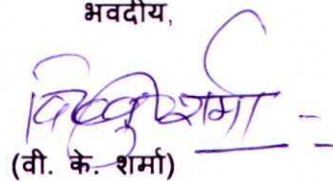 भवदीय,
शर्मा
(वी. के. शर्मा)